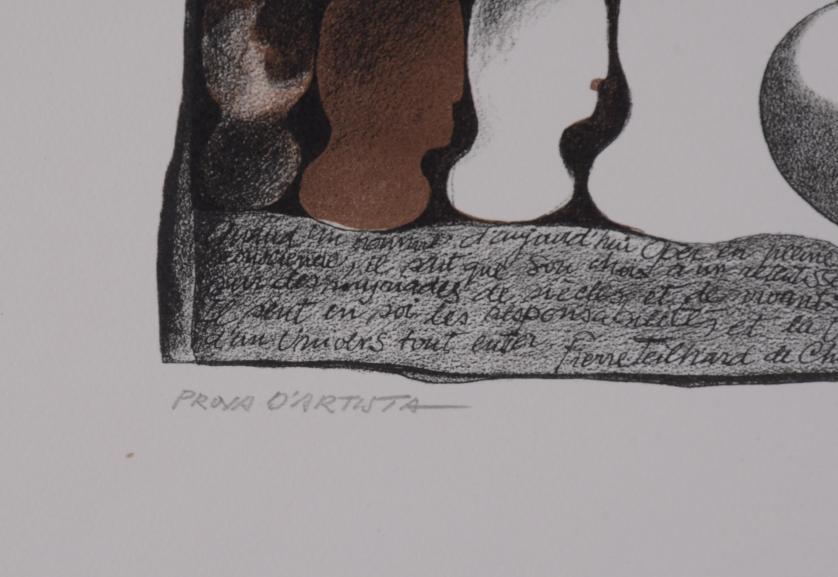 Quand un homme, d'aujourd'hui oper en pleine
conscience, il sait que son choix a un
sur des myriades de siècles et de vivants
il sent en soi les responsabilités et la
d'un Univers tout entier Pierre Teilhard de Ch
PROVA D'ARTISTA